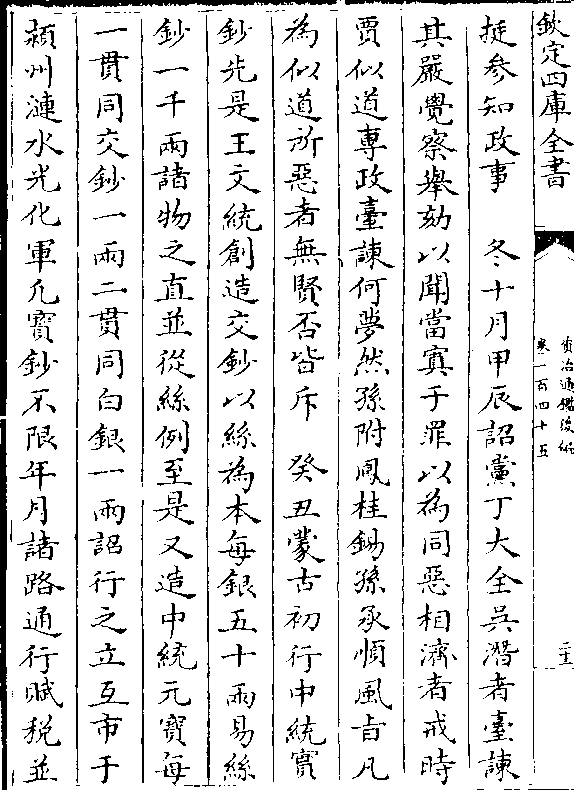 欽定四庫全書
資治通鑑後編
卷一百四十五
二十五
挺參知政事　冬十月甲辰詔黨丁大全吳潛者臺諫
其嚴覺察舉劾以聞當寘于罪以為同惡相濟者戒時
賈似道專政臺諫何夢然孫附鳳桂錫孫承順風旨凡
為似道所惡者無賢否皆斥　癸丑蒙古初行中統寳
鈔先是王文統創造交鈔以絲為本每銀五十兩易絲
鈔一千兩諸物之直並從絲例至是又造中統元寳每
一貫同交鈔一兩二貫同白銀一兩詔行之立互市于
潁州漣水光化軍凢寳鈔不限年月諸路通行賦稅並